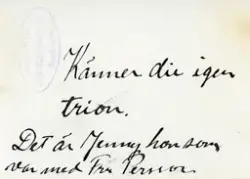 Känner du igen
trion.
Det är Jenny hon som
var med Fru Persson